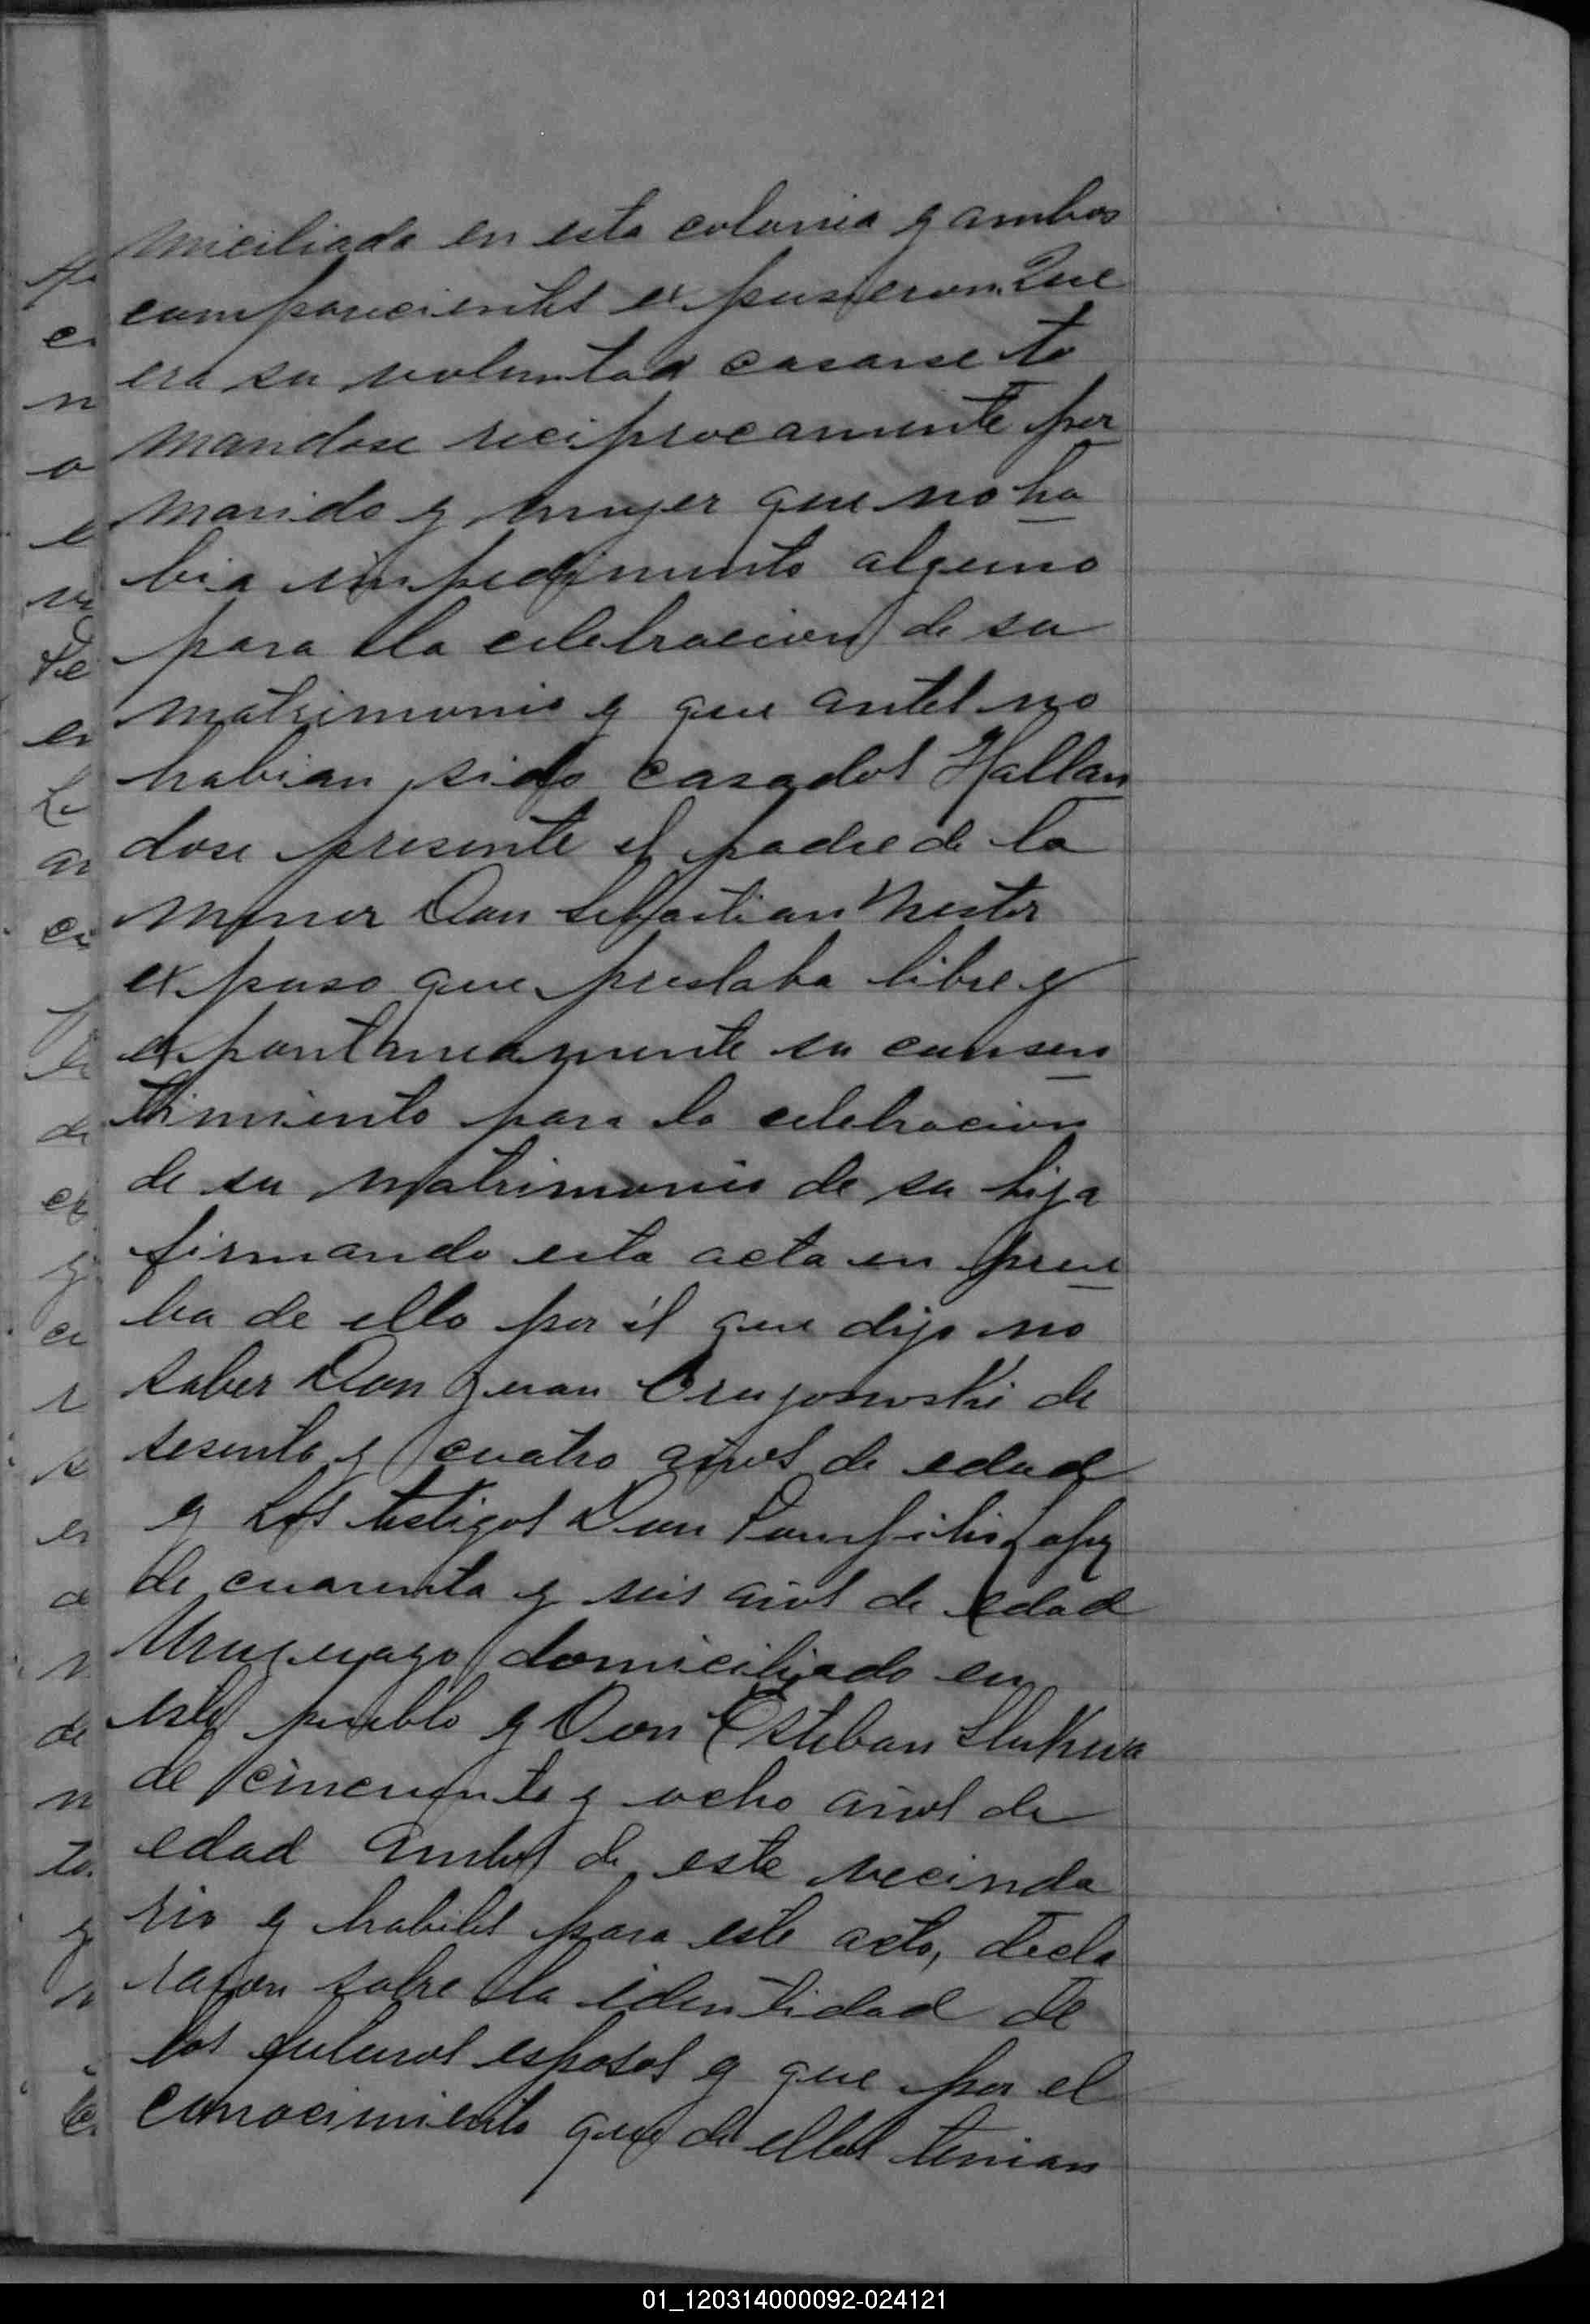 miciliada en esta colonia y ambos
comparecientes expusieron. Que
era su voluntad casarse to
mandose reciprocamente por
marido y mujer que no ha
bia impedimento alguno
para la celebracion de su
matrimonio y que antes no
habian sido casados Hallan
dose presente el padre de la
menor Don Sebastian Nestor
expuso que prestaba libre y
espontaneamente su consen
timiento para la celebracion
de su matrimonio de su hija
firmando esta acta en prue
ba de ello por él que dijo no
saber Don Juan de
sesenta y cuatro años de edad
y los testigos Don Panfilio Lopez
de cuarenta y seis años de edad
Uruguayo domiciliado en
este pueblo y Don Esteban
de cincuenta y ocho años de
edad ambos de este vecinda
rio y habiles para este acto, decla
raron sobre la identidad de
los futuros esposos y que por el
conocimiento que de ellos tenian
01_120314000092-024121